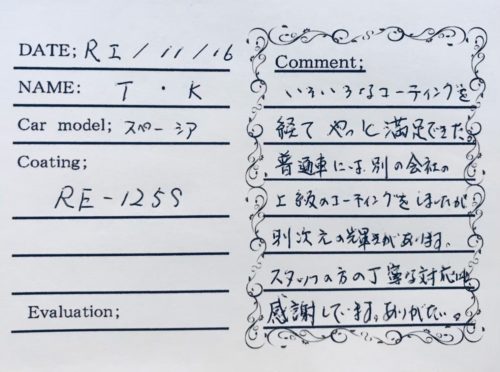 DATE; R1/11/16
NAME: T・K
Car model; スペーシア
Coating;
RE-125S
Evaluation;
Comment;
いろいろなコーティングを
経て やっと満足できた。
普通車には、別の会社の
上級のコーティングをしましたが
別次元の輝きがあります。
スタッフの方の丁寧な対応に
感謝しています。ありがたい。